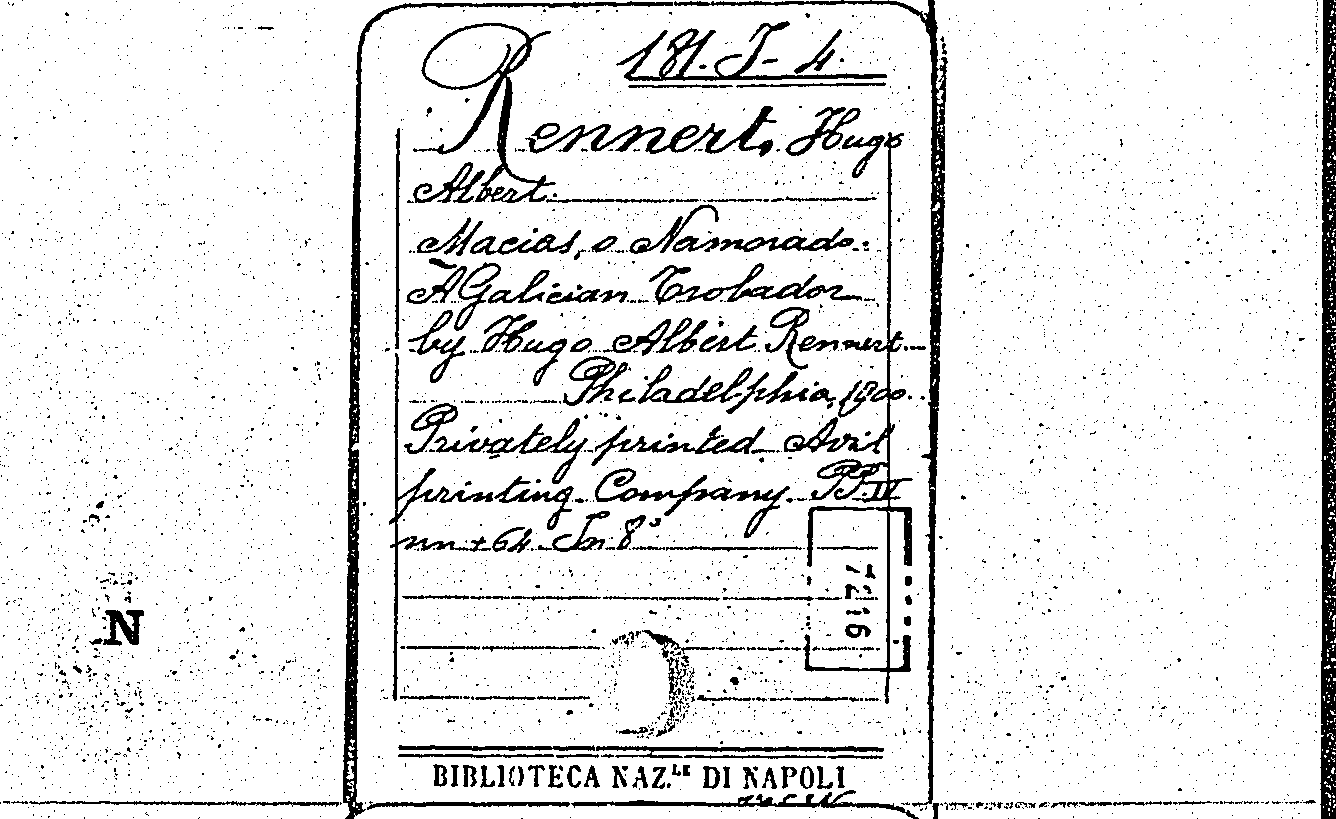 181. J- 4.
Rennert, Hugo
Albert.
Macias, o Namorado.
A Galician Trobador
by Hugo Albert Rennert
Philadelphia, 1900.
Privately printed Avil
printing Company. PP. IV
nn + 64. In 8°
7216
N
BIBLIOTECA NAZ.LE DI NAPOLI